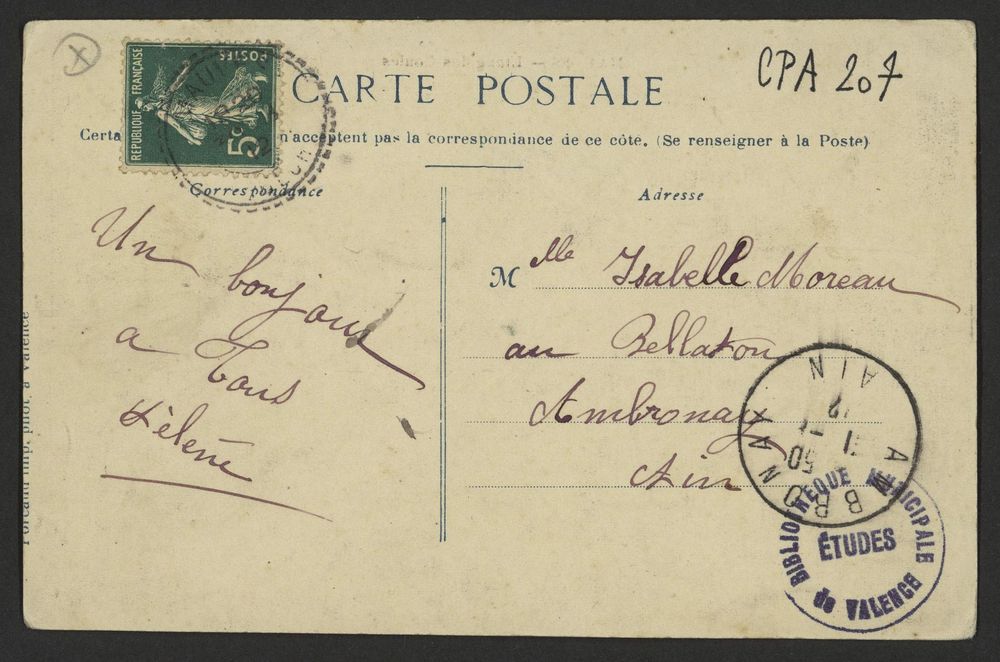 CPA 207
RÉPUBLIQUE FRANÇAISE
POSTES
5c
CARTE POSTALE
Certa n'acceptent pas la correspondance de ce côté. (Se renseigner à la Poste)
Correspondance
Adresse
Un bonjour
a Tous
Hélène
Mlle Isabelle Moreau
au Bellaton
Ambronay
Ain
AMBRONAY
AIN
BIBLIOTHÈQUE MUNICIPALE
ÉTUDES
de VALENCE
imp. phot. à Valence